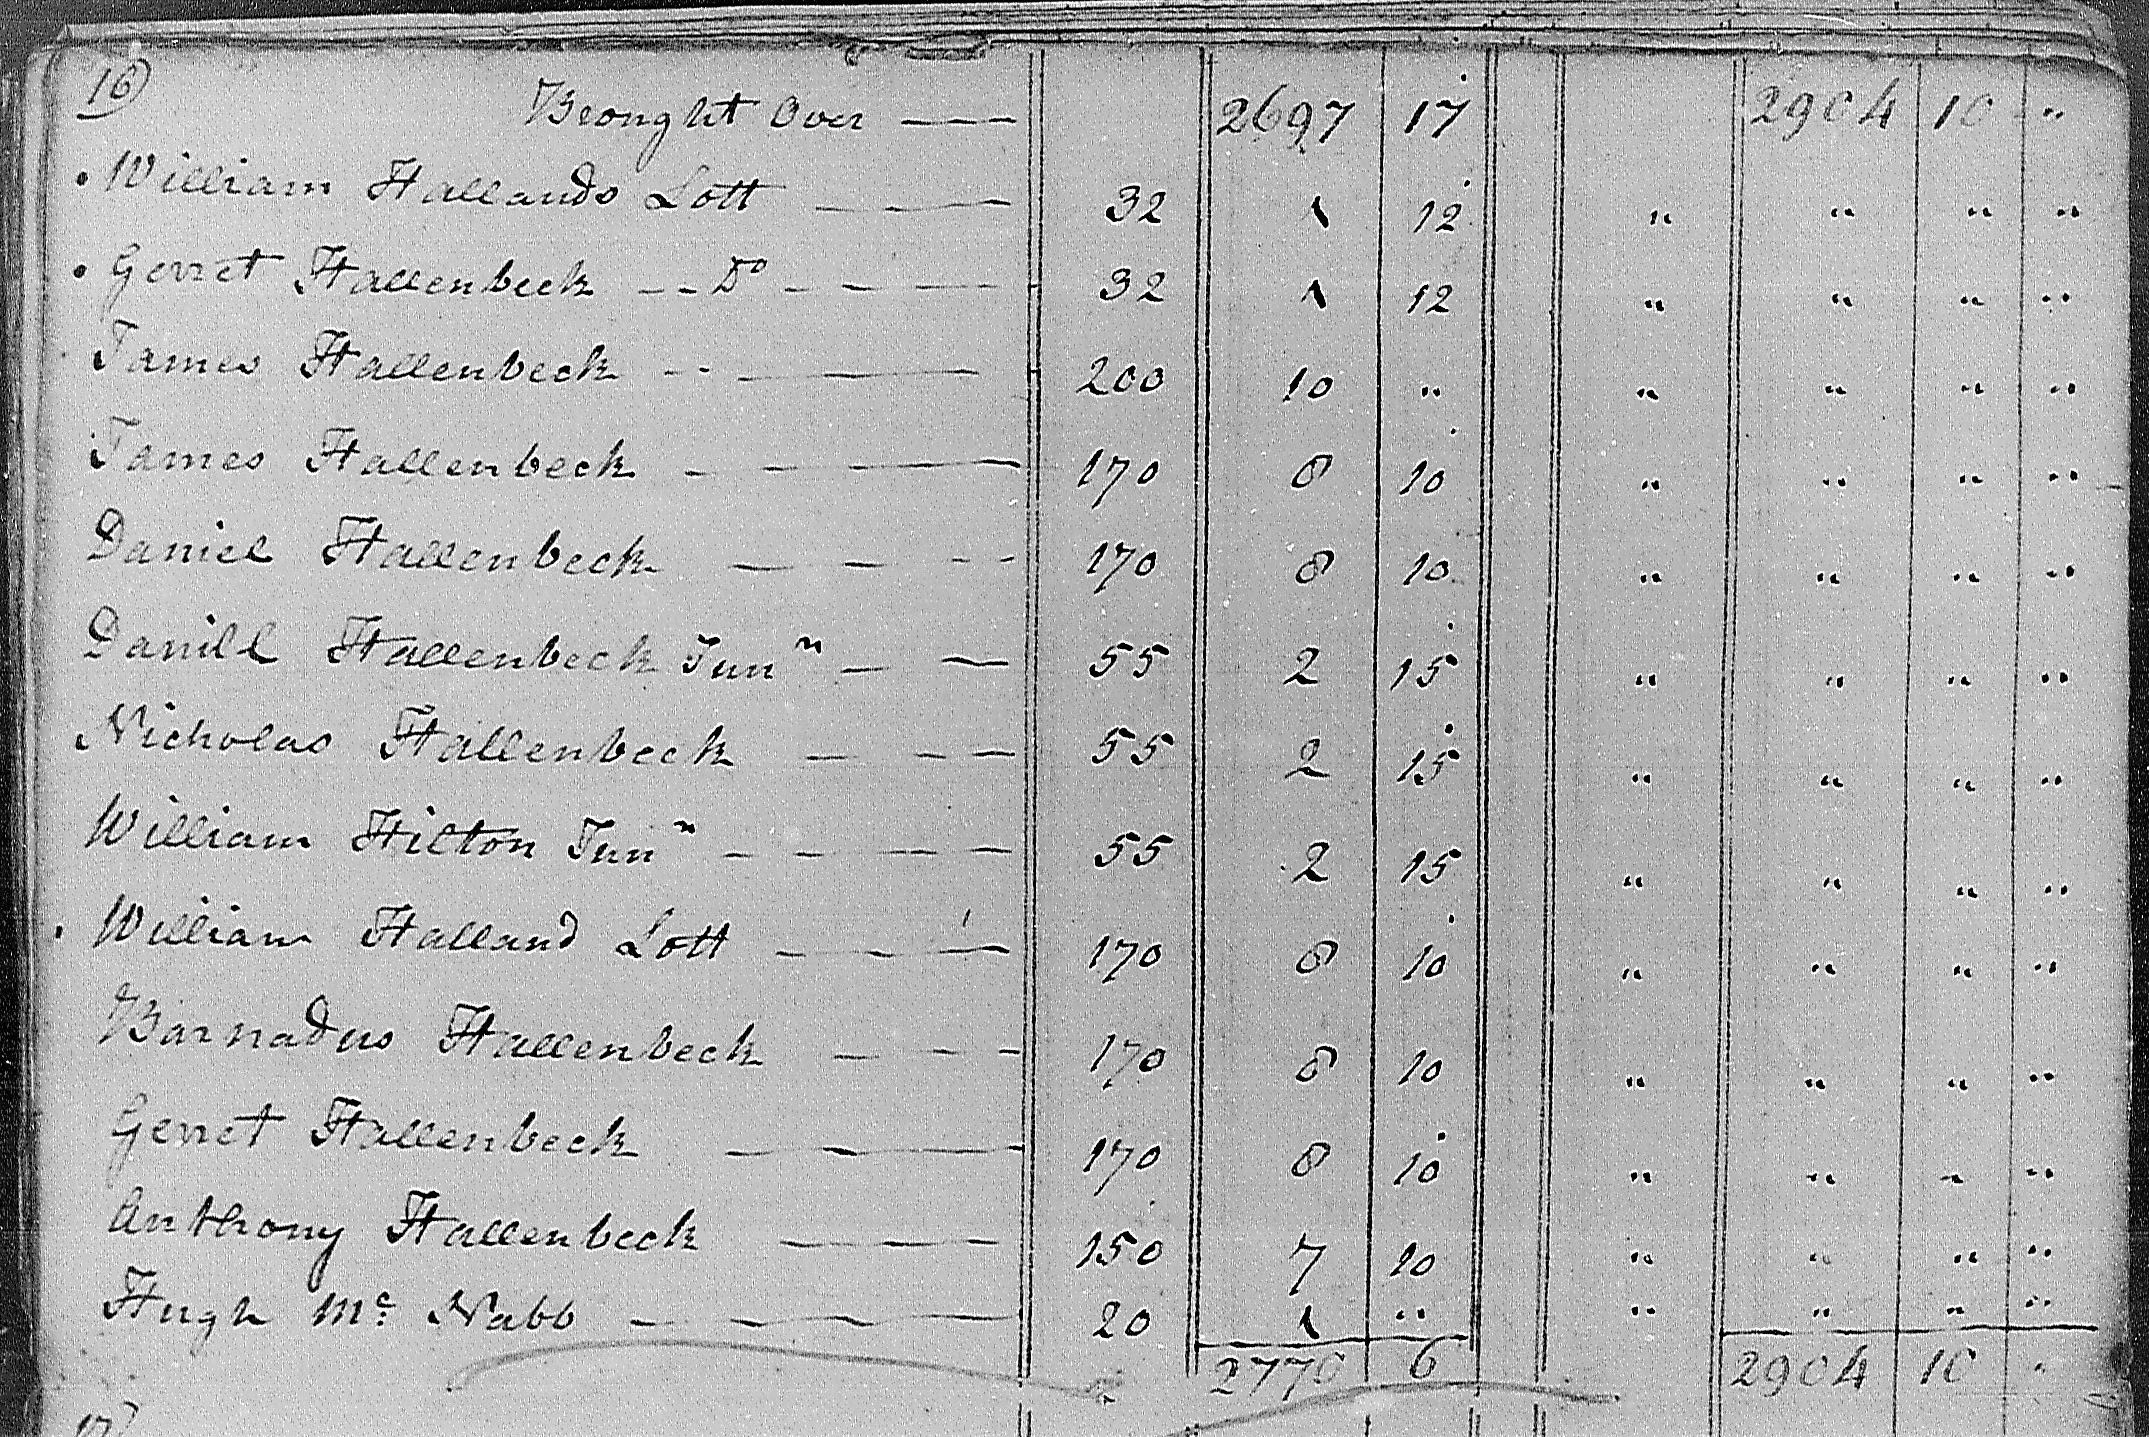 16)
Brought Over —— 2697 17 2904 10 "
William Hallands Lott — — — 32 1 12 " " " "
Gerret Hallenbeck -- Do - — — — 32 1 12 " " " "
James Hallenbeck - - — — 200 10 " " " " "
James Hallenbeck - — — 170 8 10 " " " "
Daniel Hallenbeck — — - - 170 8 10 " " " "
Daniel Hallenbeck Junr — — 55 2 15 " " " "
Nicholas Hallenbeck — — — 55 2 15 " " " "
William Hilton Junr — — — — 55 2 15 " " " "
William Halland Lott — — — 170 8 10 " " " "
Barnadus Hallenbeck — — — 170 8 10 " " " "
Gerret Hallenbeck — — — 170 8 10 " " " "
Anthony Hallenbeck — — — 150 7 10 " " " "
Hugh Mc Nabb — — — 20 1 " " " " "
2770 6 2904 10 "
17)